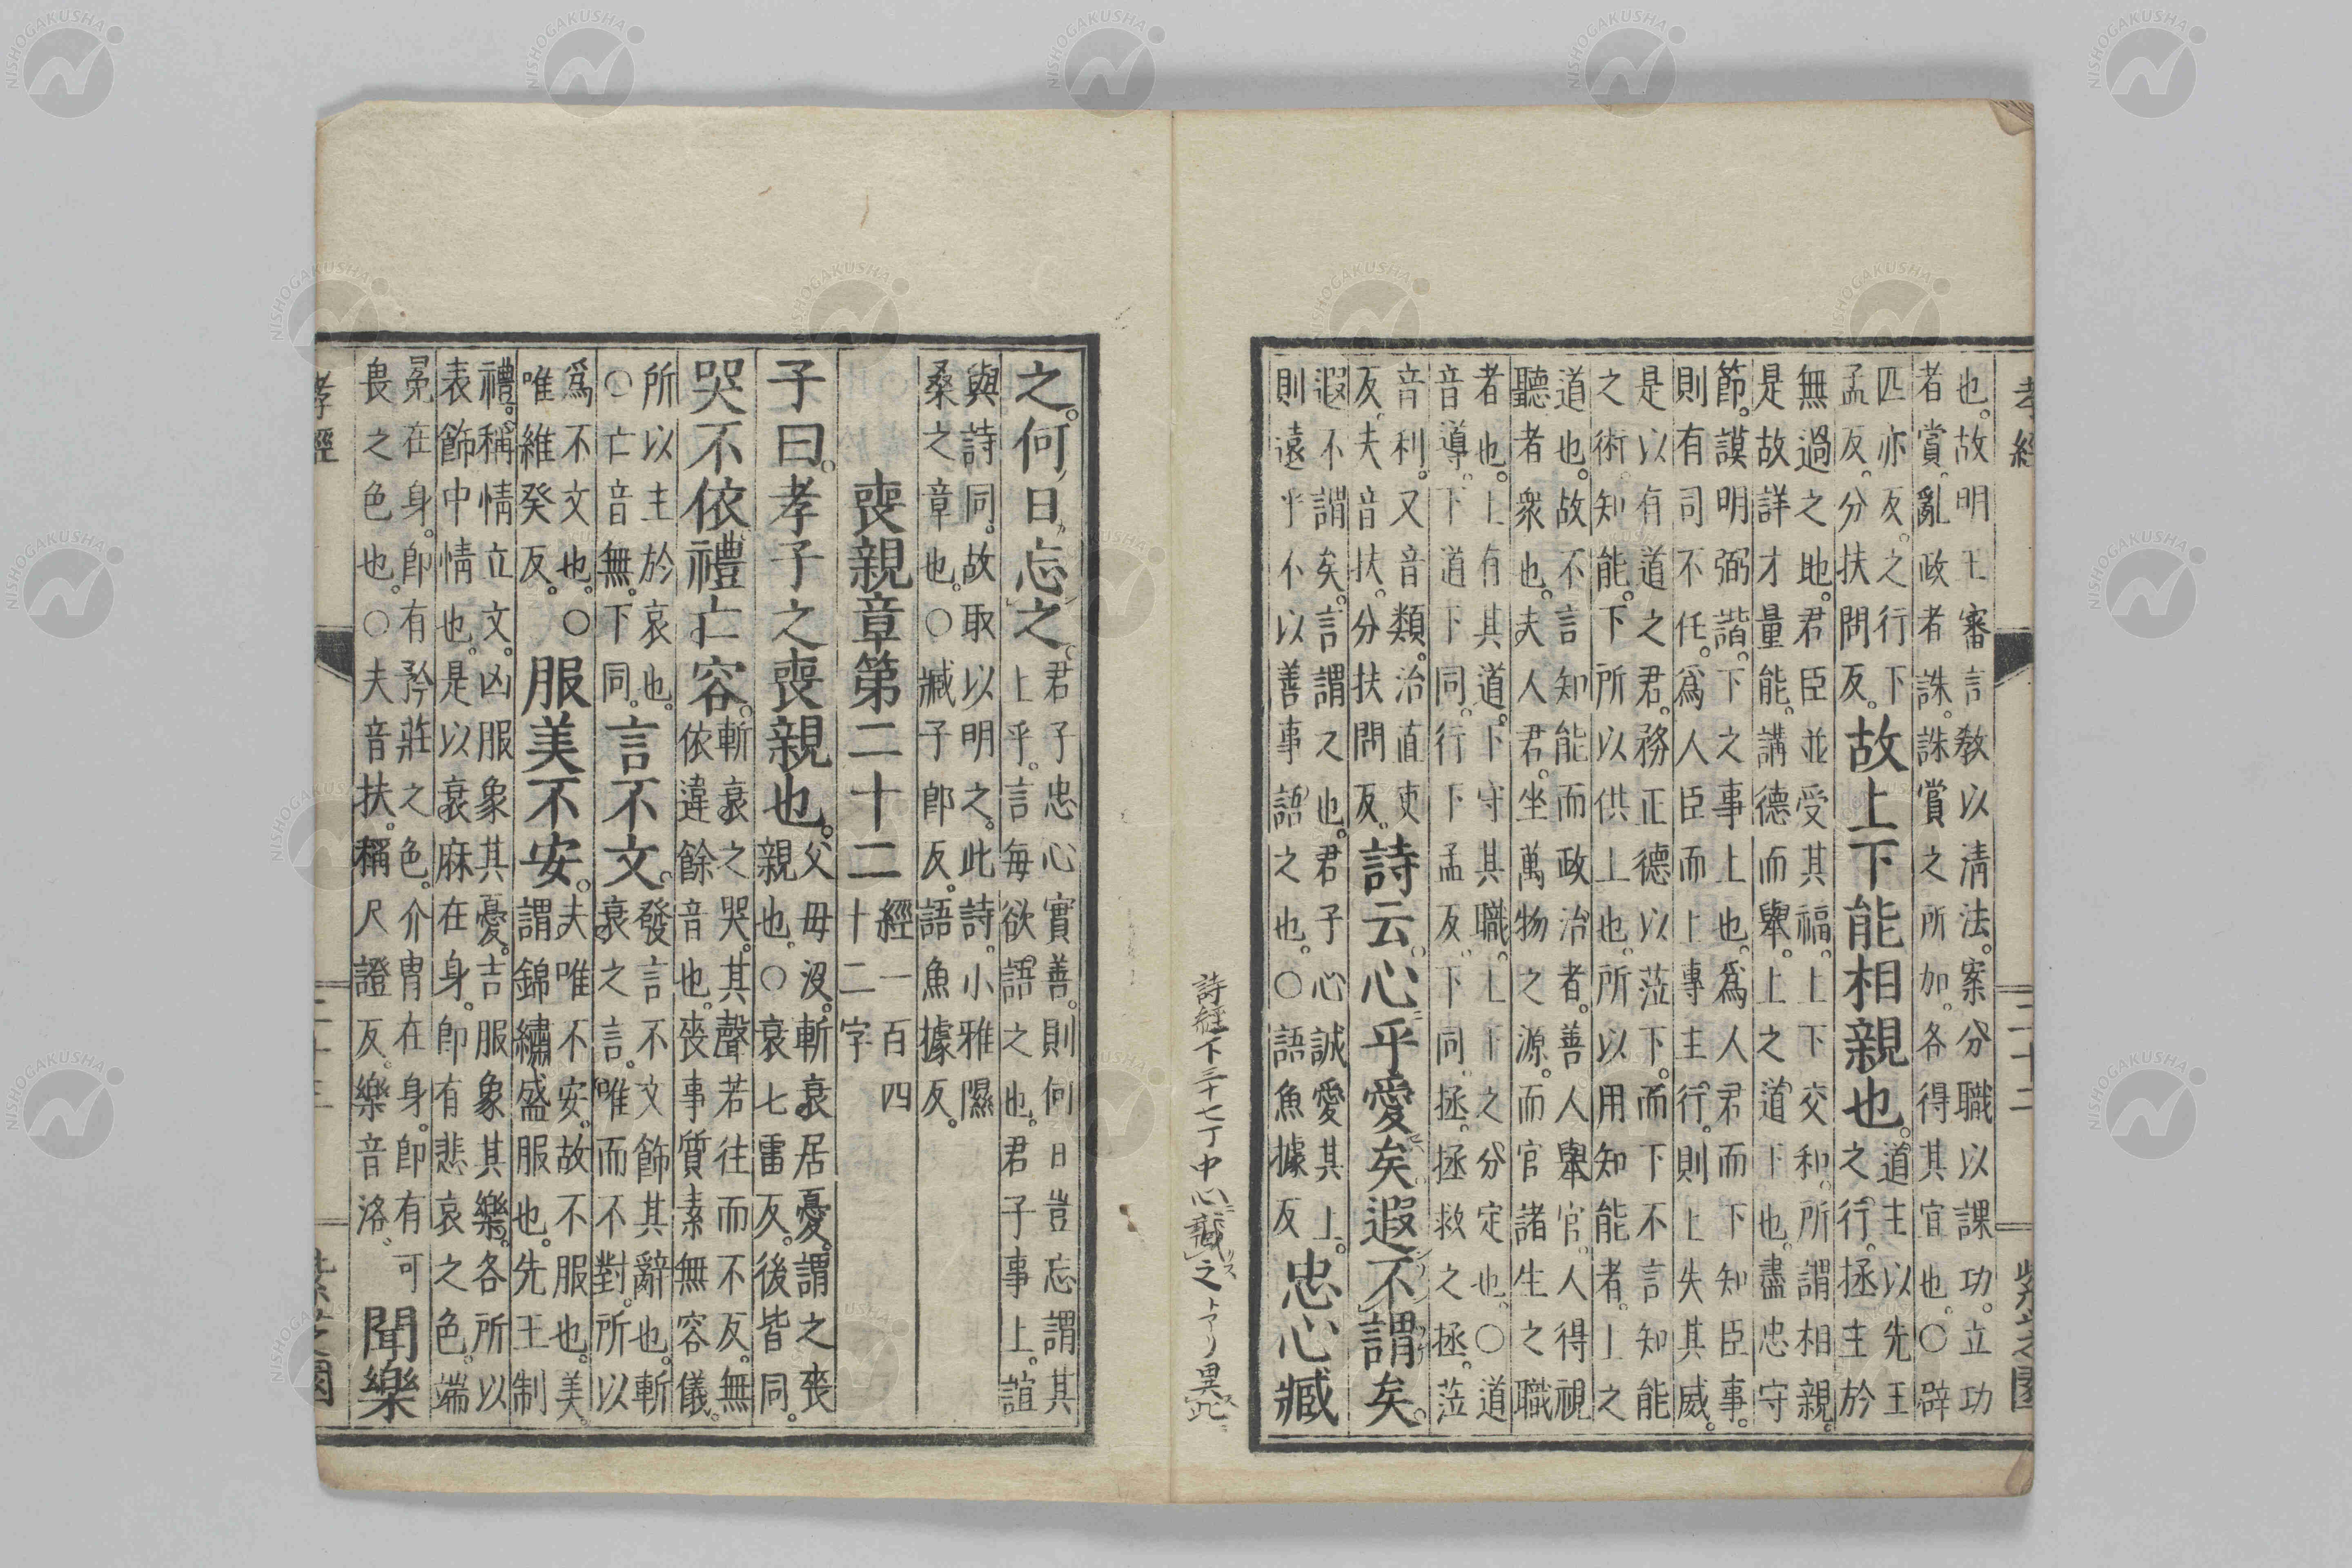 孝經
二十二
紫芝園
也。故明王審言教以清法。案分職以課功。立功
者賞。亂政者誅。誅賞之所加。各得其宜也。○辟
匹亦反。之行下
孟反。分扶問反。
故上下能相親也。
道主以先王
之行。拯主於
無過之地。君臣並受其福。上下交和。所謂相親。
是故詳才量能。講德而舉。上之道下也。盡忠守
節。謨明弼諧。下之事上也。爲人君而下知臣事。
則有司不任。爲人臣而上專主行。則上失其威。
是以有道之君。務正德以莅下。而下不言知能
之術。知能。下所以供上也。所以用知能者。上之
道也。故不言知能而政治者。善人舉官。人得視
聽者衆也。夫人君。坐萬物之源。而官諸生之職
者也。上有其道。下守其職。上下之分定也。○道
音導。下下道下同。行下孟反。下同。拯拯救之拯。莅
音利。又音類。治直吏
反。夫音扶。分扶問反。
詩云。心乎愛矣。遐不謂矣。
遐不謂矣。言謂之也。君子心誠愛其上。
則遠乎不以善事語之也。○語魚據反
忠心臧
詩経下三十七丁中心ニ臧之トアリ異此ニ
之。何日忘之。
君子忠心實善。則何日豈忘謂其
上乎。言每欲語之也。君子事上。誼
與詩同。故取以明之。此詩。小雅隰
桑之章也。○臧子郎反。語魚據反。
喪親章第二十二
經一百四
十二字
子曰。孝子之喪親也。
父毋沒。斬衰居憂。謂之喪
親也。○衰七雷反。後皆同。
哭不依禮亡容。
斬衰之哭。其聲若往而不反。無
依違餘音也。喪事質素無容儀。
所以主於哀也。
○亡音無。下同。
言不文。
發言不文飾其辭也。斬
衰之言。唯而不對。所以
爲不文也。○
唯維癸反。
服美不安。
夫唯不安。故不服也。美。
謂錦繡盛服也。先王制
禮。稱情立文。凶服象其憂。吉服象其樂。各所以
表飾中情也。是以衰麻在身。卽有悲哀之色。端
冕在身。卽有矜莊之色。介冑在身。卽有可
畏之色也。○夫音扶。稱尺證反。樂音洛。
聞樂
孝經
二十三
紫芝園
NISHOGAKUSHA